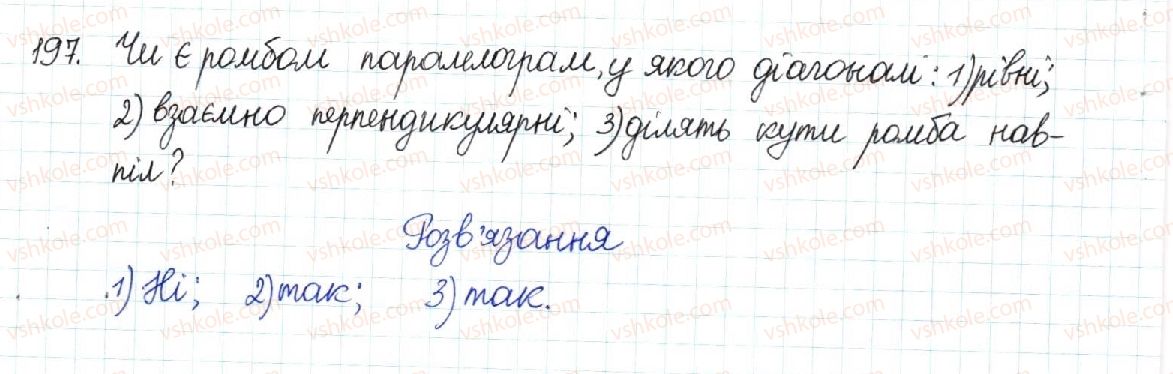 197. Чи є ромбом паралелограм, у якого діагоналі: 1) рівні;
2) взаємно перпендикулярні; 3) ділять кути ромба нав-
піл?
Розв'язання
1) Ні; 2) так; 3) так.